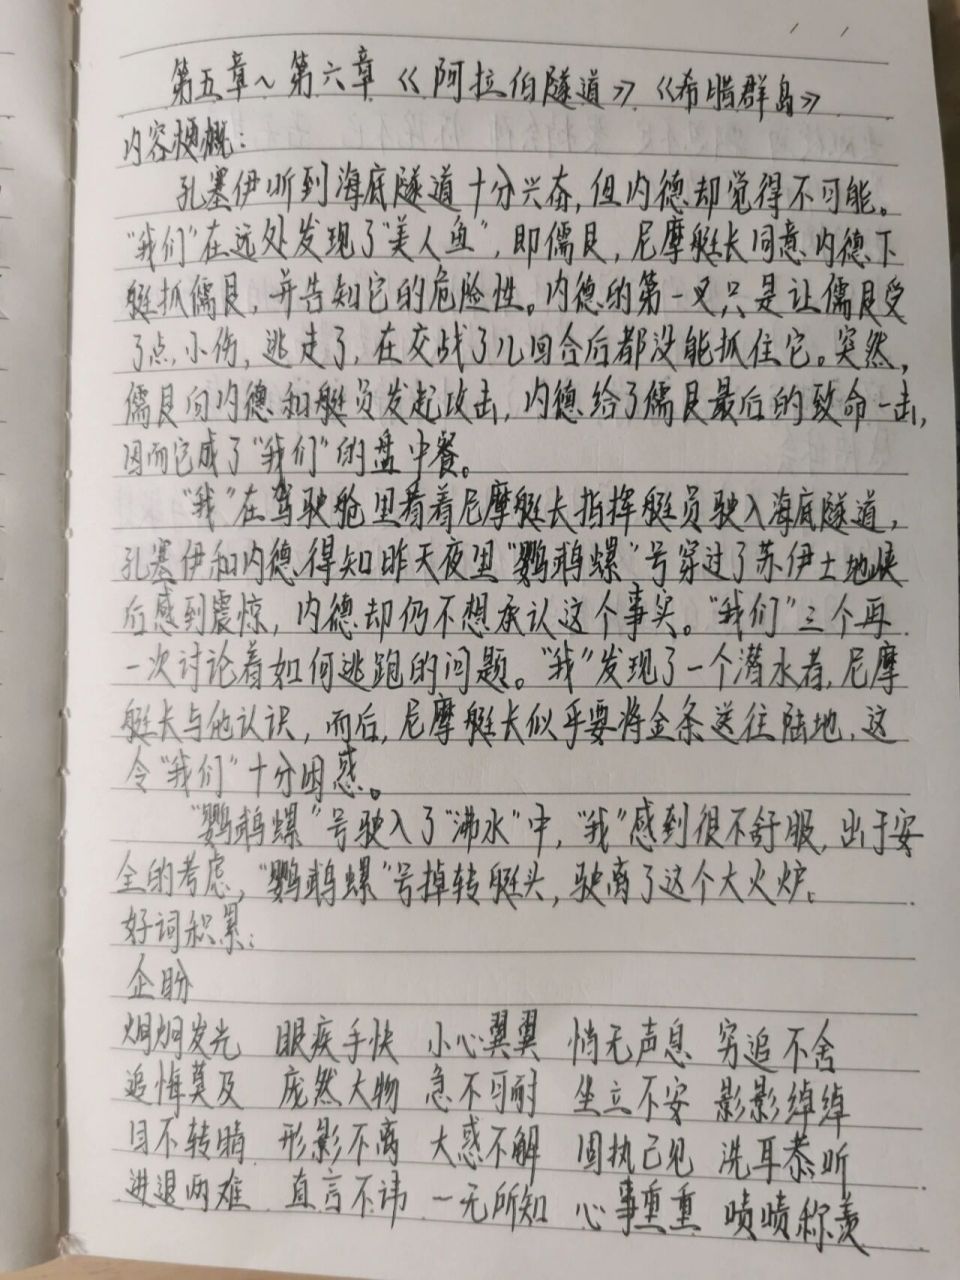 第五章～第六章《阿拉伯隧道》《希腊群岛》
内容梗概：
孔塞伊听到海底隧道十分兴奋，但内德却觉得不可能。
“我们”在远处发现了“美人鱼”，即儒艮，尼摩艇长同意内德下
艇抓儒艮，并告知它的危险性。内德的第一叉只是让儒艮受
了点小伤，逃走了，在交战了几回合后都没能抓住它。突然，
儒艮向内德和艇员发起攻击，内德给了儒艮最后的致命一击，
因而它成了“我们”的盘中餐。
“我”在驾驶舱里看着尼摩艇长指挥艇员驶入海底隧道，
孔塞伊和内德得知昨天夜里“鹦鹉螺”号穿过了苏伊士地峡
后感到震惊，内德却仍不想承认这个事实。“我们”三个再
一次讨论着如何逃跑的问题。“我”发现了一个潜水者，尼摩
艇长与他认识，而后，尼摩艇长似乎要将金条送往陆地，这
令“我们”十分困惑。
“鹦鹉螺”号驶入了“沸水”中，“我”感到很不舒服，出于安
全的考虑，“鹦鹉螺”号掉转艇头，驶离了这个大火炉。
好词积累：
企盼
炯炯发光 眼疾手快 小心翼翼 悄无声息 穷追不舍
追悔莫及 庞然大物 急不可耐 坐立不安 影影绰绰
目不转睛 形影不离 大惑不解 固执己见 洗耳恭听
进退两难 直言不讳 一无所知 心事重重 啧啧称羡